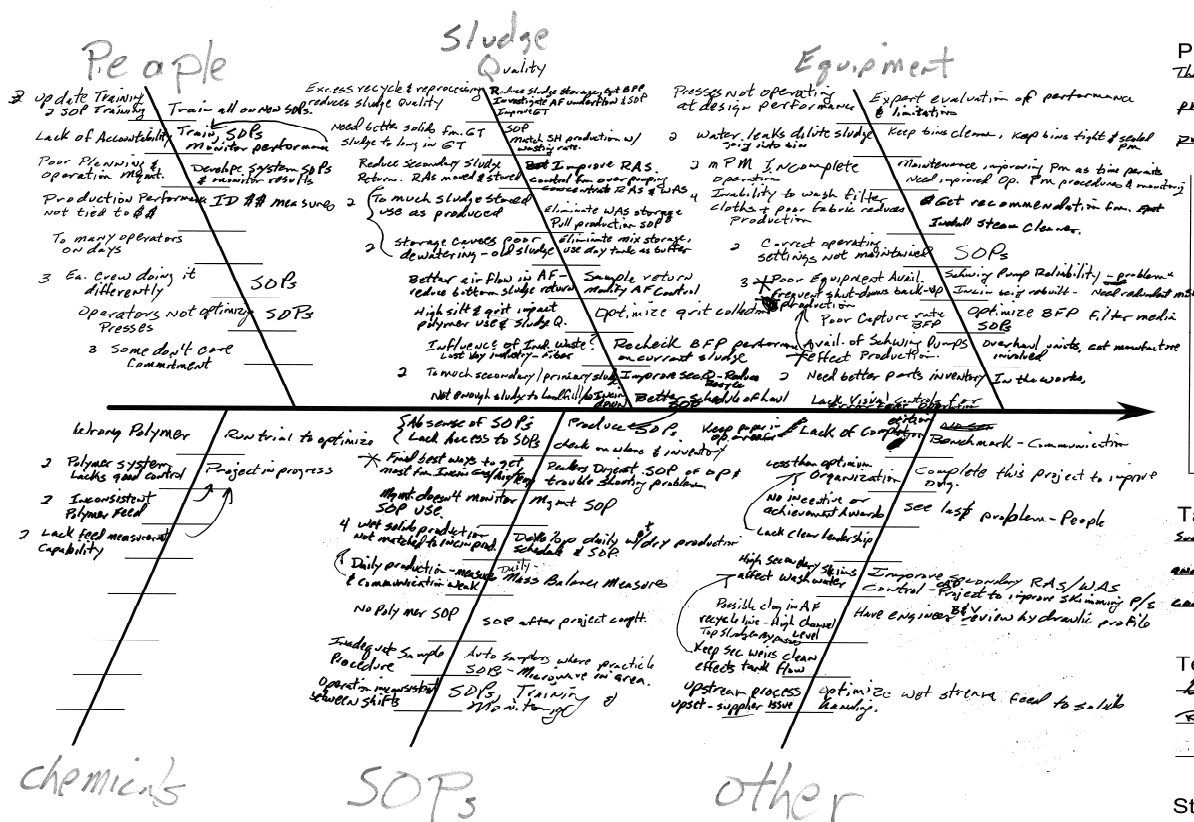 People
Sludge
Quality
Equipment
3 update Training
2 SOP Training
Train all on new SOPs.
Lack of Accountability
Train, SOPs
Monitor performance
Poor Planning &
Operation Mgmt.
Develope System SOPs
& monitor results
Production Performa
Not tied to $$
ID $$ measures
To many operators
on days
3 Ea. Crew doing it
differently
SOPs
Operators Not optimize
Presses
SOPs
3 Some don't care
Commitment
Excess recycle & reprocessing
reduces sludge Quality
Reduce sludge storage,
Investigate AF underflow & SOP
Improve GT
Need bette solids fm. GT
sludge to long in GT
SOP
Match SH production w/
wasting rate.
Reduce Secondary Sludge
Return. RAS moved & stored
Improve RAS.
control fm over pumping
concentrate RAS & WAS
2 To much sludge stored
use as produced
Eliminate WAS storage
Pull production SOP
2 storage causes poor
dewatering - old sludge
Eliminate mix storage,
use day tank as buffer
Better air flow in AF -
reduce bottom sludge return
Sample return
Modify AF Control
High silt & grit impact
polymer use & sludge Q.
Optimize grit collection
Influence of Indl Waste?
Lost Key industry - Fiber
Recheck BFP performan
on current sludge
2 To much secondary/primary sludg
Improve Sec Q - Reduce
Not enough sludge to landfill/
Better Schedule of haul
SOP
Presses not operating
at design performance
Expert evaluation of performance
& limitation
2 water leaks dilute sludge
going into bin
Keep bins cleane, Keep bins tight & sealed
PM
2 mPM Incomplete
operation
Maintenance improving Pm as time permits
Need improved Op. Pm procedures & monitoring
4 Inability to wash filter
cloths & poor fabric reduces
Production
Get recommendation fm.
Install Steam Cleaner.
2 Correct operating
settings not maintained
SOPs
3 Poor Equipment Avail.
Frequent shut-downs back-up
production
Schwing Pump Reliability - problem
Incin being rebuilt - Need redundant
Poor Capture rate
BFP
Optimize BFP Filter media
SOPs
Avail. of Schwing Pumps
effect Production.
Overhaul units, get manufature
involved
2 Need better parts inventory
In the works,
Lack Visual Controls for
Wrong Polymer
Run trial to optimize
2 Polymer system
Lacks good control
Project in progress
2 Inconsistent
Polymer Feed
2 Lack feed measurement
Capability
Absence of SOPs
Lack Access to SOPs
Produce SOPs.
Keep paper in
op. area
check on where & inventory
Find best ways to get
Readers Digest SOP of OP &
trouble shooting problem
Mgmt doesn't monitor
SOP use.
Mgmt SOP
4 wet solids production
Not matched to Incin prod.
Develop daily wet/dry production
schedule & SOP
Daily production - measure
& communication weak
Daily -
Mass Balance Measures
No Polymer SOP
SOP after project complt.
Inadequate Sample
Procedure
Auto Samplers where practicle
SOPs - Microwave in area.
Operation inconsistent
between shifts
SOPs, Training
Monitoring
Lack of Completion
Benchmark - Communication
Less than optimum
Organization
Complete this project to improve
Org.
No incentive or
achievement Awards
See last problem - People
Lack clear leadership
High Secondary Skims
affect washwater
Improve Secondary RAS/WAS
Control - Project to improve skimming P/S
Possible clog in AF
recycle line - High channel
Level
Top Sludge Bypasses
Have engineer B&V review hydraulic profile
Keep Sec weirs clean
effects tank flow
upstream process
upset - supplier issue
optimize wet stream feed to solids
handling.
chemicals
SOPs
other
P
Th
T
Te
St